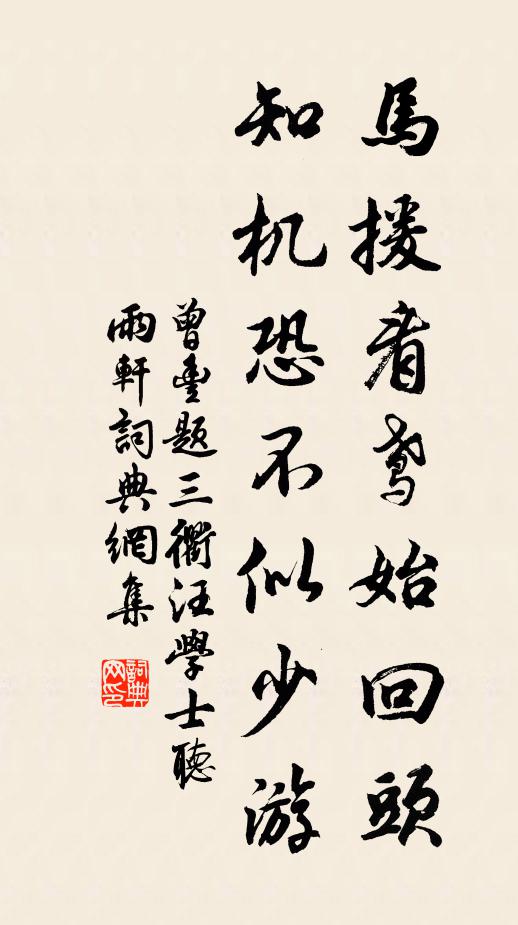 馬援看鸢始回頭
知机恐不似少游
曾豊題三衢汪學士聽
雨軒詞典網集
詞典网印